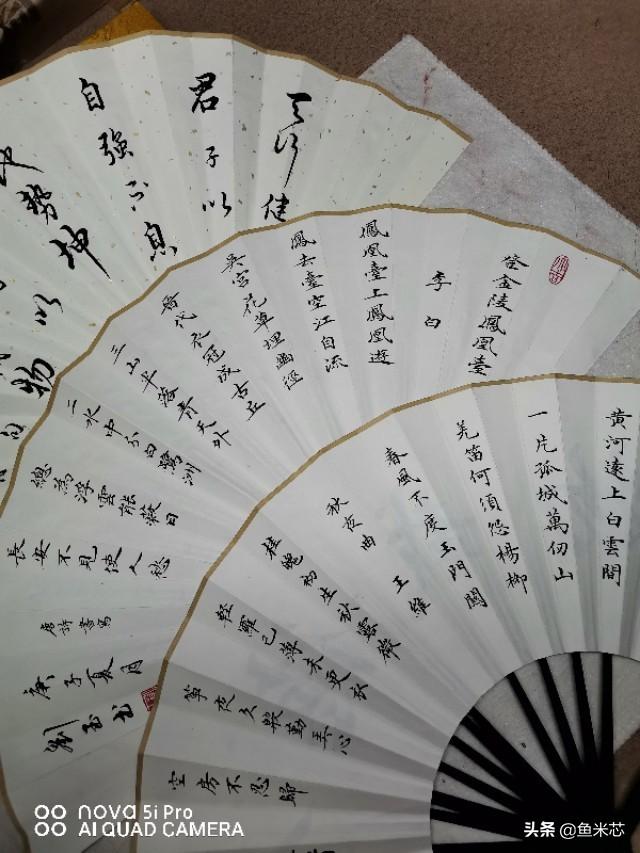 天行健
君子以
自強不息
地勢坤
以
物
登金陵鳳凰臺
李白
鳳凰臺上鳳凰遊
鳳去臺空江自流
吳宮花草埋幽徑
晉代衣冠成古丘
三山半落青天外
二水中分白鷺洲
總為浮雲能蔽日
長安不見使人愁
唐詩書寫
庚子夏月
劉玉
黃河遠上白雲間
一片孤城萬仞山
羌笛何須怨楊柳
春風不度玉門關
秋夜曲 王維
桂魄初生秋露微
輕羅已薄未更衣
箏夜久殷勤弄心
空房不忍歸
nova 5i Pro
AI QUAD CAMERA
头条 @鱼米芯